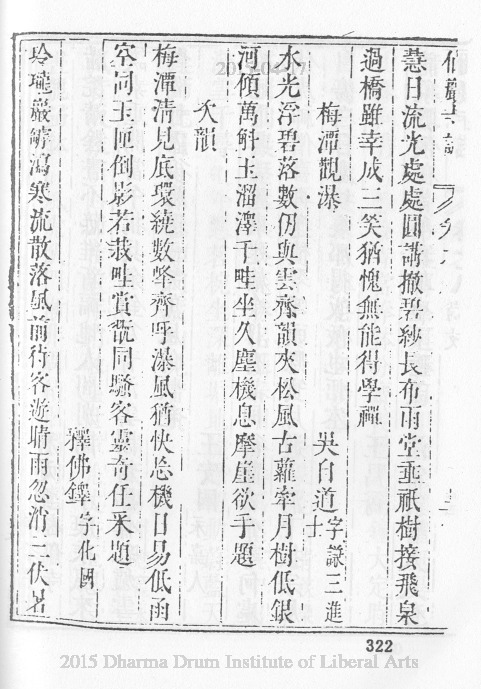 仙巖寺志 卷六
慧日流光處處圓講撤碧紗長布雨堂垂祇樹接飛泉
過橋雖幸成三笑猶愧無能得學禪
梅潭觀瀑 吳自道字謙三進士
水光浮碧落數仞與雲齊韻夾松風古蘿牽月樹低銀
河傾萬斛玉溜瀉千畦坐久塵機息摩崖欲手題
次韻
梅潭清見底環繞數峰齊呼瀑風猶快忘機日易低函
空同玉匣倒影若栽畦賞翫同騷客靈奇任采題
釋佛鐸字化國
玲瓏巖罅瀉寒流散落風前待客遊晴雨忽消三伏暑
2015 Dharma Drum Institute of Liberal Arts
322